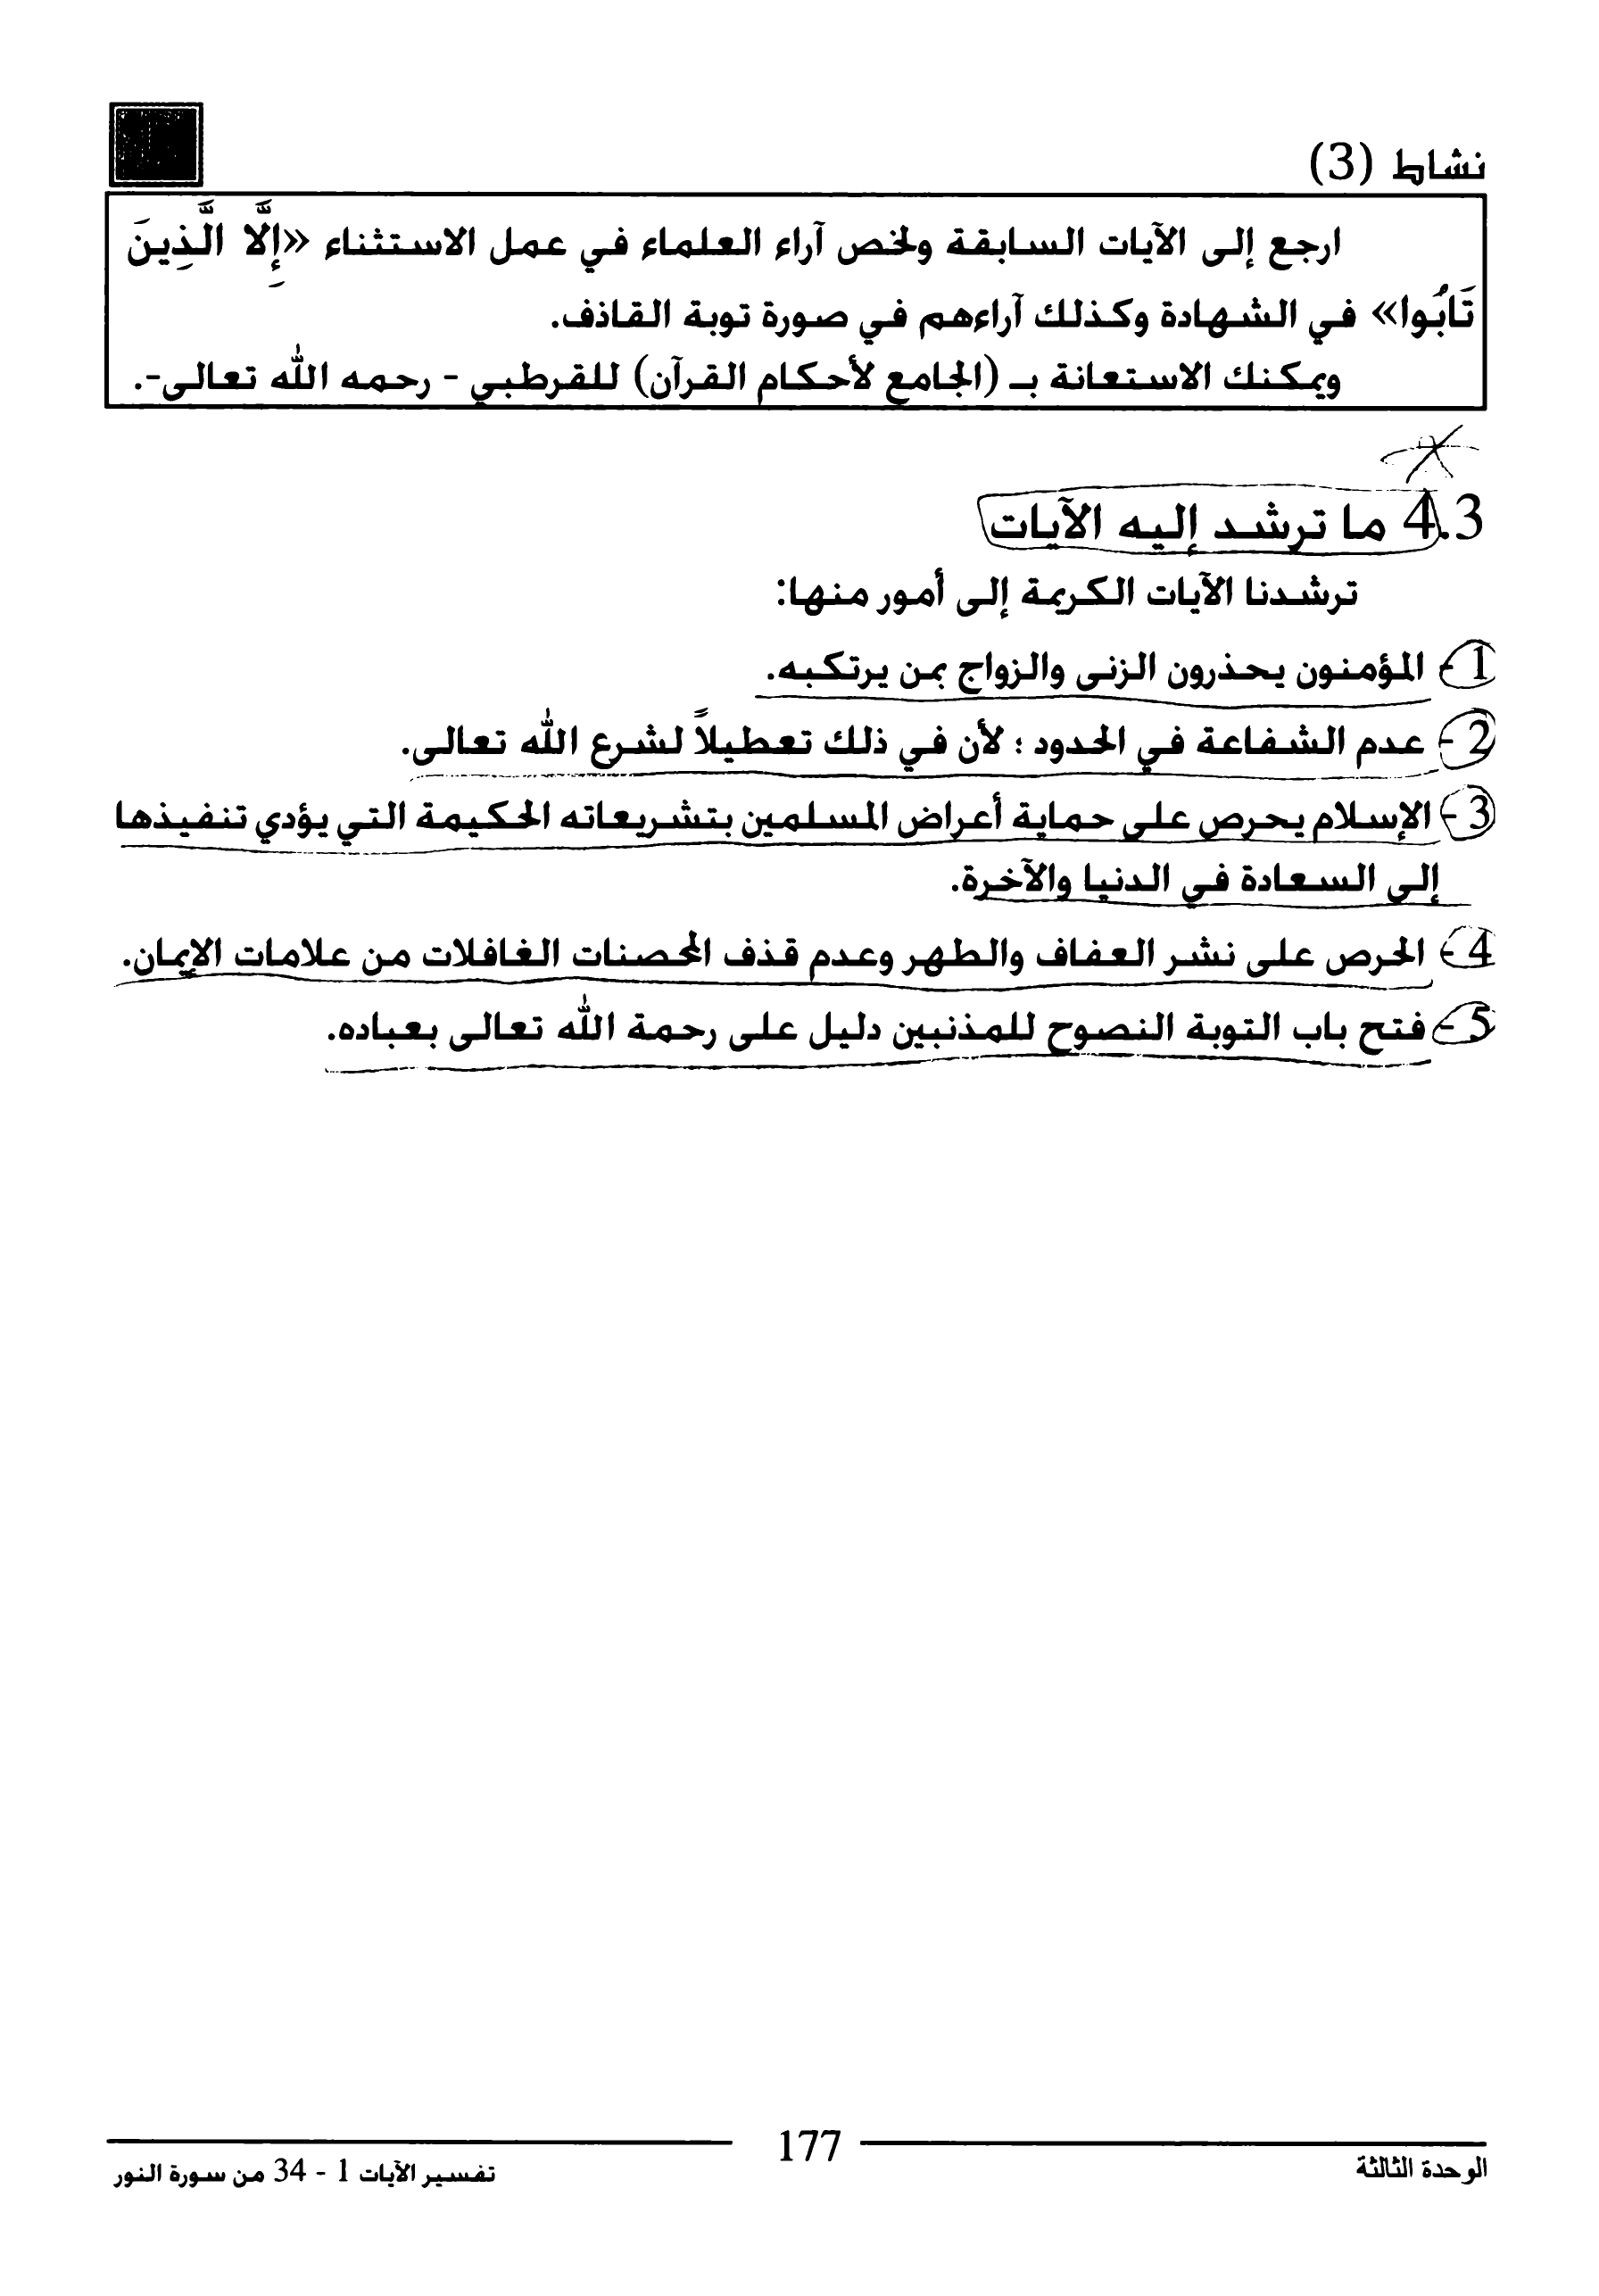 نشاط (3)
ارجع إلى الآيات السابقة ولخص آراء العلماء في عمل الاستثناء «إِلَّا الَّذِينَ
تَابُوا» في الشهادة وكذلك آراءهم في صورة توبة القاذف.
ويمكنك الاستعانة بـ (الجامع لأحكام القرآن) للقرطبي - رحمه الله تعالى-.
4.3 ما ترشد إليه الآيات
ترشدنا الآيات الكريمة إلى أمور منها:
1- المؤمنون يحذرون الزنى والزواج بمن يرتكبه.
2- عدم الشفاعة في الحدود ؛ لأن في ذلك تعطيلاً لشرع الله تعالى.
3- الإسلام يحرص على حماية أعراض المسلمين بتشريعاته الحكيمة التي يؤدي تنفيذها
إلى السعادة في الدنيا والآخرة.
4- الحرص على نشر العفاف والطهر وعدم قذف المحصنات الغافلات من علامات الإيمان.
5- فتح باب التوبة النصوح للمذنبين دليل على رحمة الله تعالى بعباده.
177
الوحدة الثالثة
تفسير الآيات 1 - 34 من سورة النور